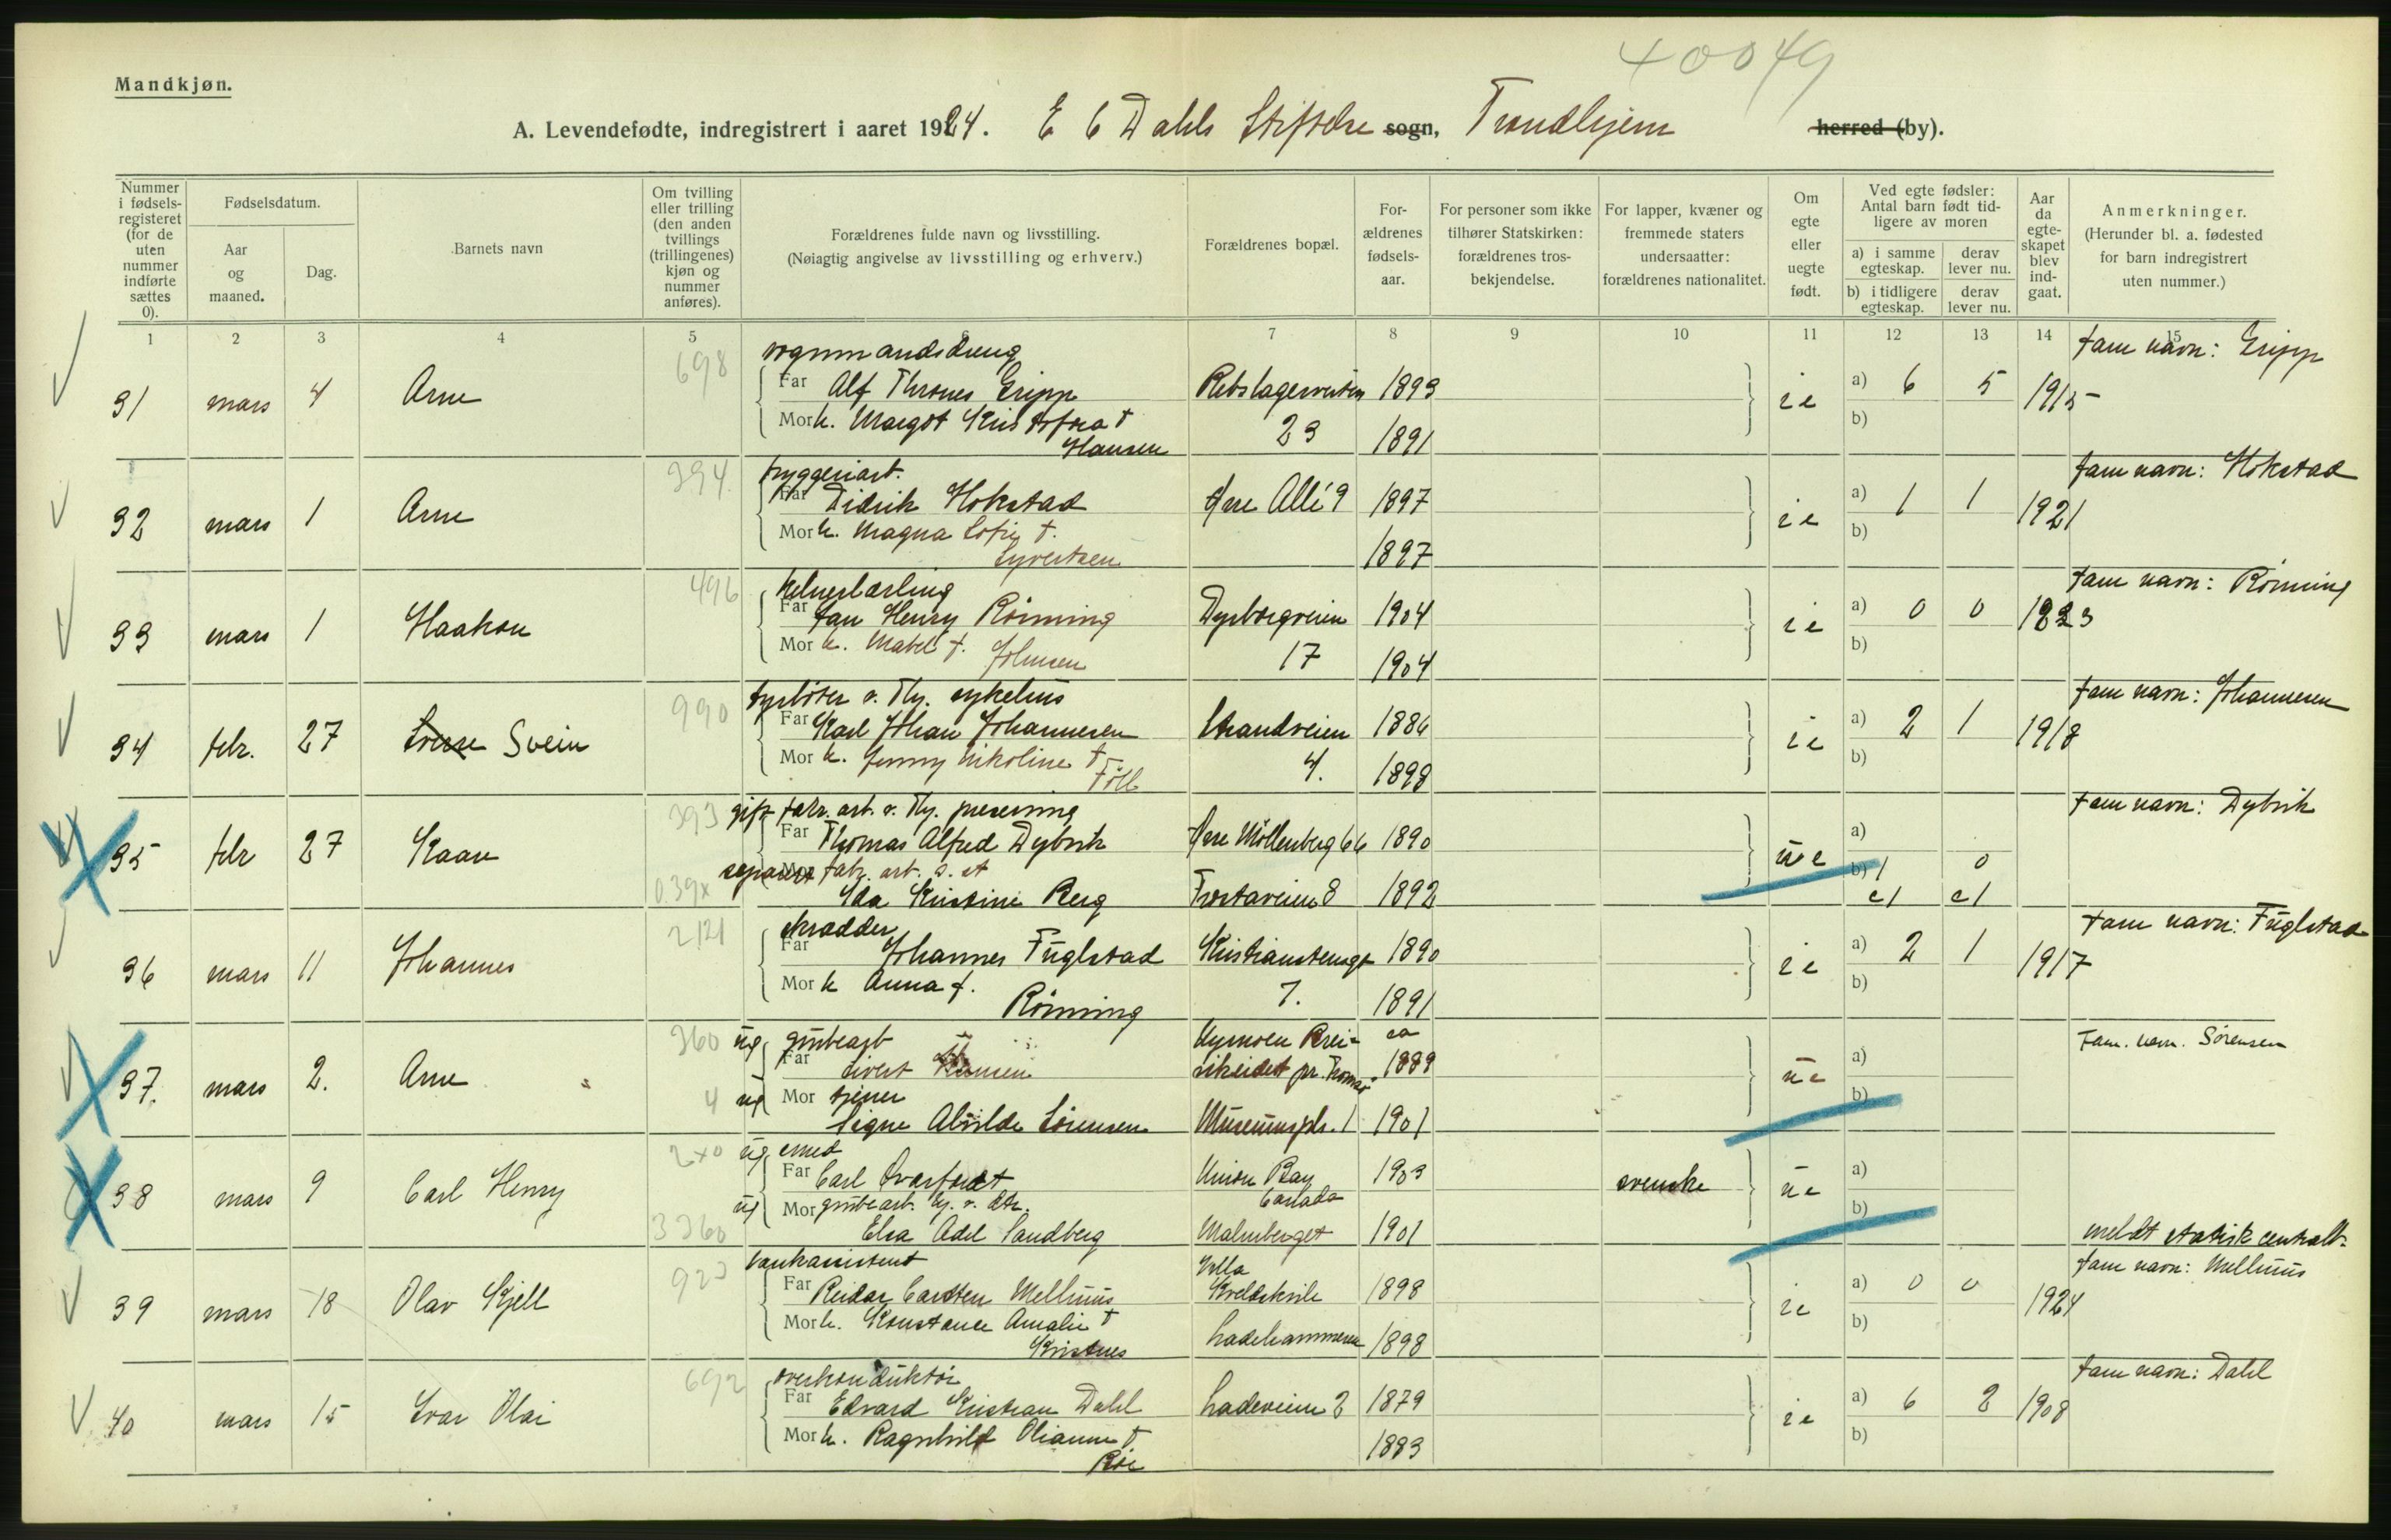 40049
Mandkjøn.
A. Levendefødte, indregistrert i aaret 1924. E C Dahls Stiftelse sogn, Trondhjem herred (by).
Nummer i fødselsregisteret (for de uten nummer indførte sættes 0).
Fødselsdatum.
Aar og maaned.
Dag.
Barnets navn
Om tvilling eller trilling (den anden tvillings (trillingenes) kjøn og nummer anføres).
Forældrenes fulde navn og livsstilling.
(Nøiagtig angivelse av livsstilling og erhverv.)
Forældrenes bopæl.
Forældrenes fødselsaar.
For personer som ikke tilhører Statskirken: forældrenes trosbekjendelse.
For lapper, kvæner og fremmede staters undersaatter: forældrenes nationalitet.
Om egte eller uegte født.
Ved egte fødsler: Antal barn født tidligere av moren
a) i samme egteskap.
derav lever nu.
b) i tidligere egteskap.
derav lever nu.
Aar da egteskapet blev indgaat.
Anmerkninger.
(Herunder bl. a. fødested for barn indregistrert uten nummer.)
1 2 3 4 5 6 7 8 9 10 11 12 13 14 15
698 vognmandsdreng fam navn: Gripp
Far Alf Thrones Gripp Rebslagerveiten 1893 a) 6 5
31 mars 4 Arne ie 1915
Mor h. Margot Kristofra f 23 1891 b)
Hansen
394 bryggeriarb. fam navn: Hokstad
Far Didrik Hokstad Øvre Allé 9 1897 a) 1 1
32 mars 1 Arne ie 1921
Mor h. Magna Sofie f. 1897 b)
Syvertsen
496 kelnerlærling fam navn: Rönning
Far Jan Henry Rönning Dyrborgveien 1904 a) 0 0
33 mars 1 Haakon ie 1923
Mor h. Mabel f. 17 1904 b)
Johnsen
990 fyrböter v. Thj. sykehus fam navn: Johannesen
Far Karl Johan Johannesen Strandveien 1886 a) 2 1
34 febr. 27 Sverre Svein ie 1918
Mor h. Jenny Nikoline f 4. 1898 b)
Föll
393 gift fabr. arb. v. Thj. preserving fam navn: Dybvik
Far Thomas Alfred Dybvik Øvre Möllenberg 66 1890 a)
35 febr 27 Kaare ue b) 1 0
039x separert fabr. arb. s. st
Mor Ida Kristine Berg Frostaveien 8 1892 c1 c1
2121 skrædder fam navn: Fuglstad
Far Johannes Fuglstad Kristianstensgt 1890 a) 2 1
36 mars 11 Johannes ie 1917
Mor h Anna f. 7. 1891 b)
Rönning
360 ug grubearb Nymoen Brei- ca Fam. navn. Sörensen
Far Sivert Hansen vikeidet pr. Tromsö 1889 a)
37. mars 2. Arne ue
4 ug Mor tjener b)
Signe Alvilde Sörensen Museumspls. 1 1901
2x0 ug smed
Far Carl Svarfvedt Union Bay Canada 1903 a)
38 mars 9 Carl Henry svenske ue
3360 ug Mor grubearb. hj. v. dtr. b)
Elsa Adel Sandberg Malmberget 1901 meldt statisk centralb.
923 bankassistent Villa fam navn: Mellnuus
Far Reidar Carsten Mellnuus Kveldshvile 1898 a) 0 0
39 mars 18 Olav Kjell ie 1924
Mor h. Konstance Amalie f Ladehammeren 1898 b)
Kristnes
692 overkonduktør fam navn: Dahl
Far Edvard Kristian Dahl Ladeveien 2 1879 a) 6 2
40 mars 15 Ivar Olai ie 1908
Mor h. Ragnhild Olianna f 1883 b)
Röe